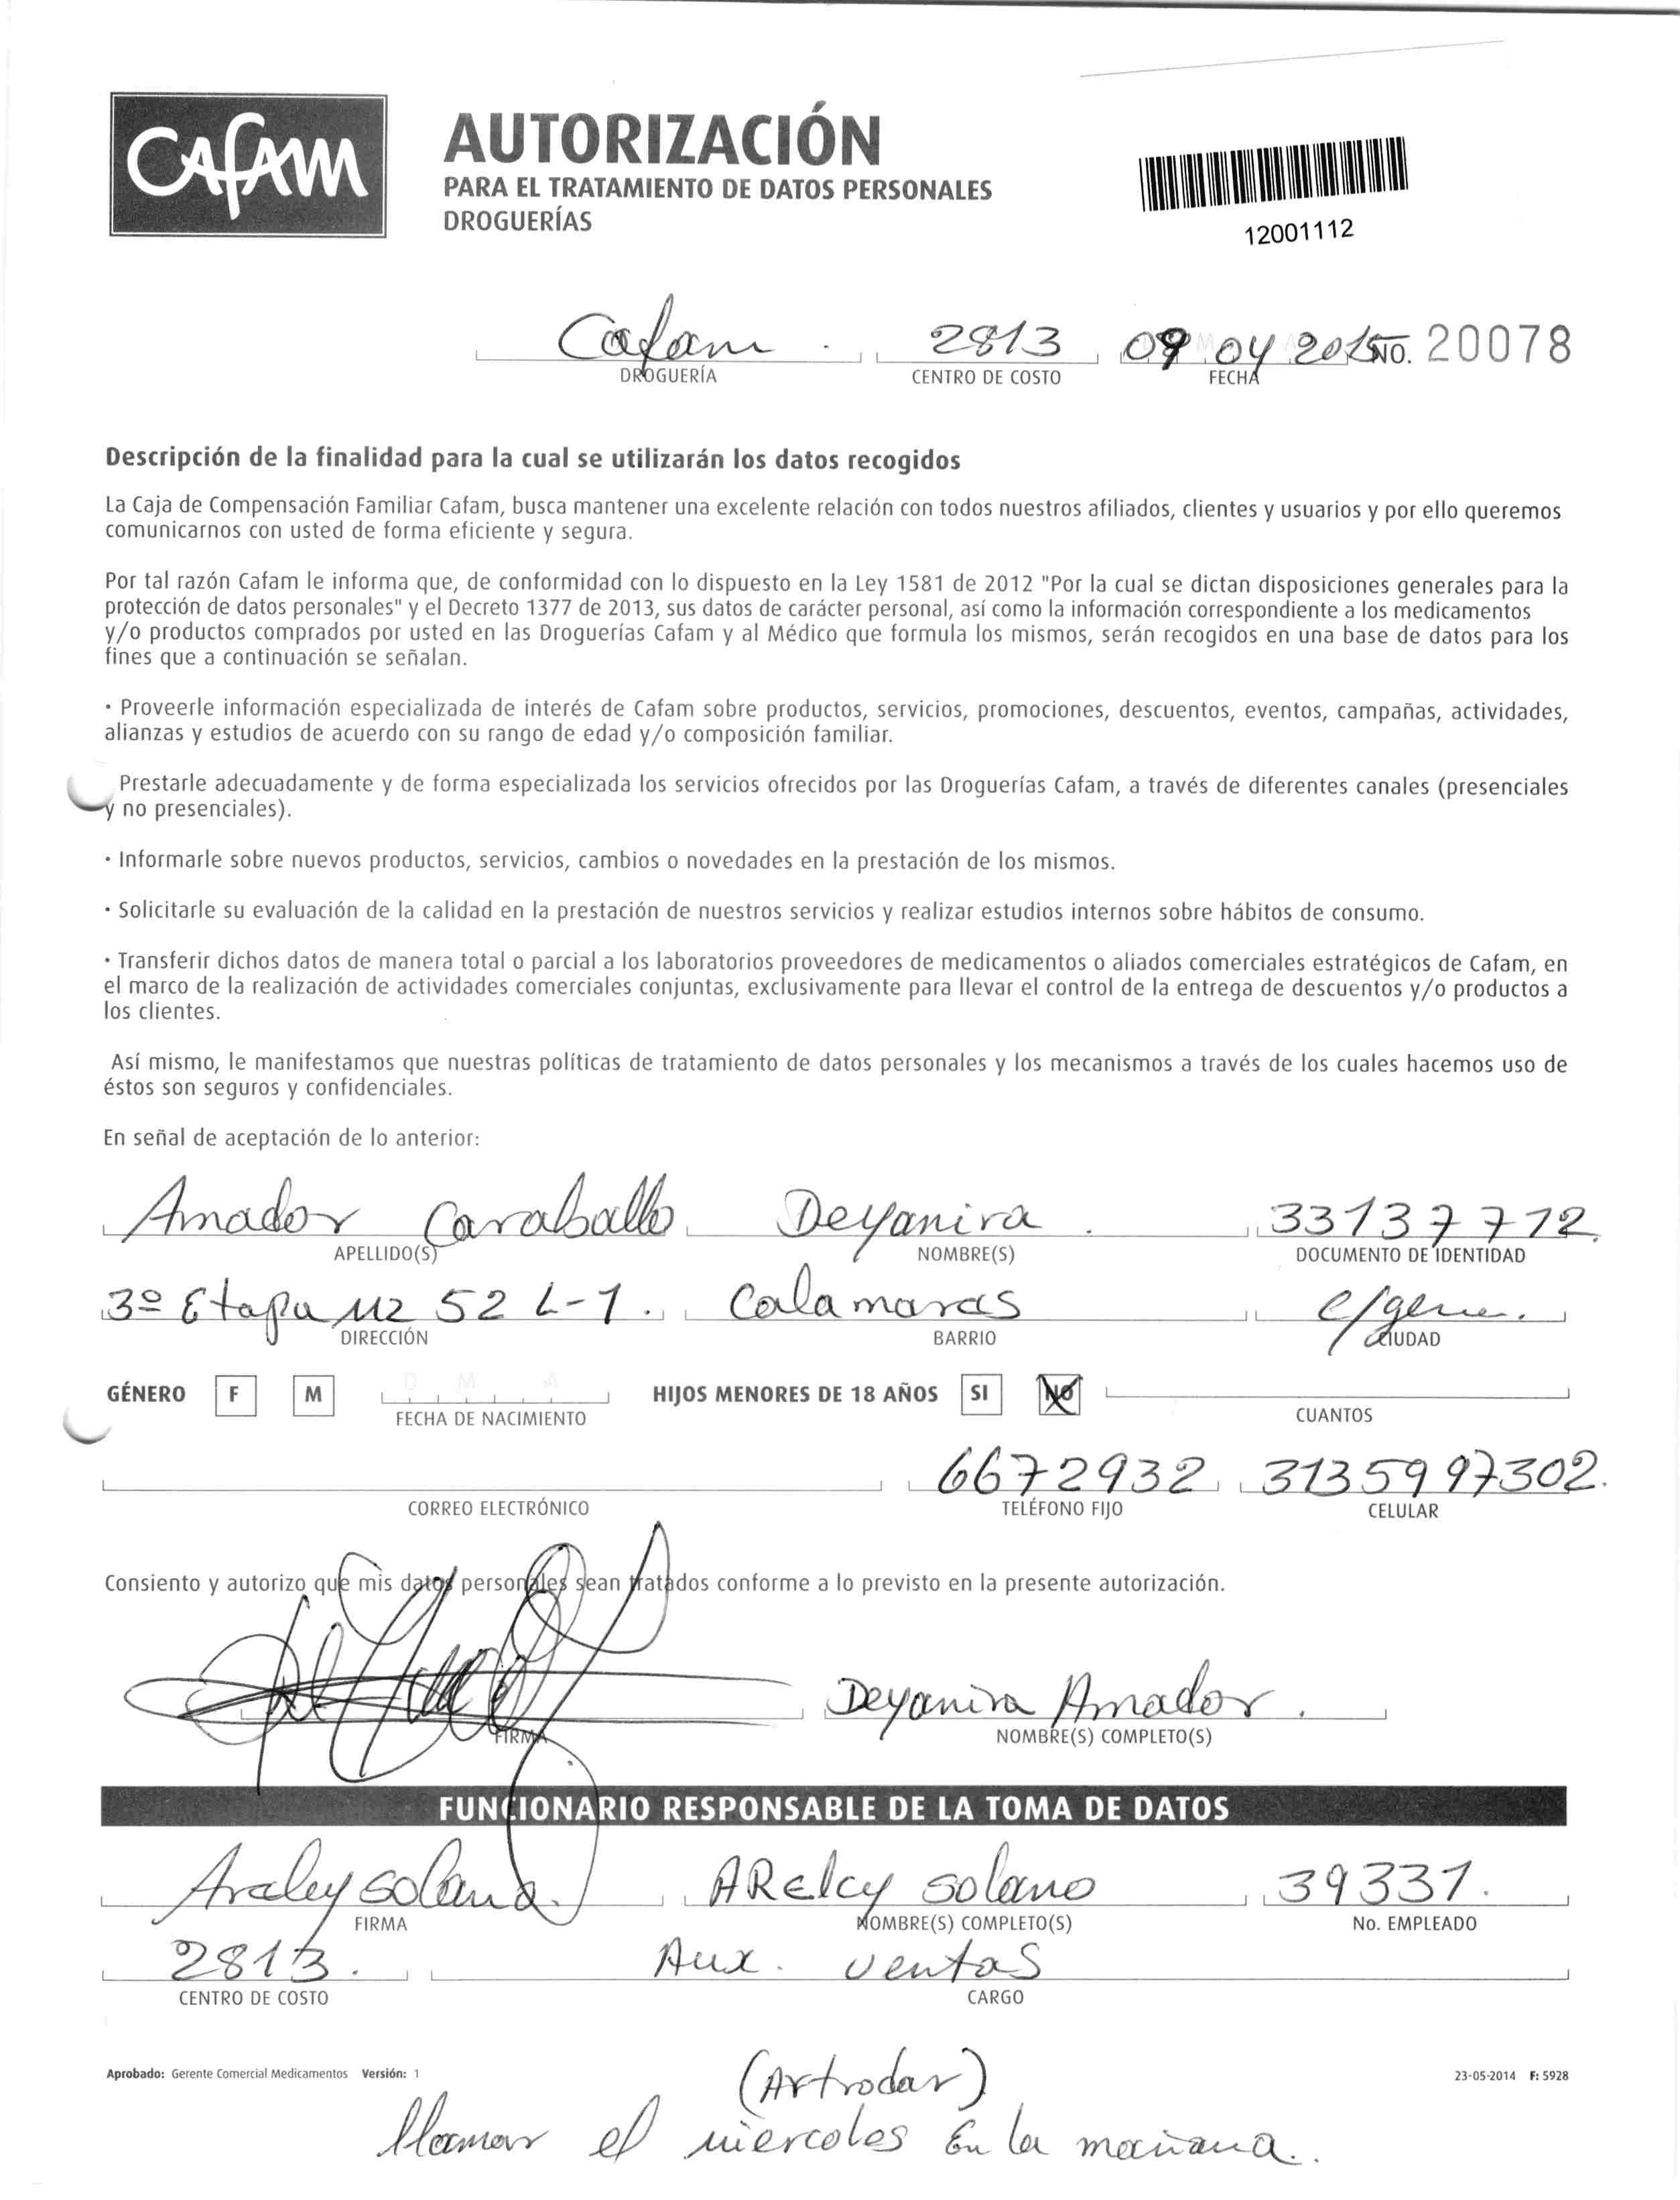 CAfAM
AUTORIZACIÓN
PARA EL TRATAMIENTO DE DATOS PERSONALES
DROGUERÍAS
12001112
Cafam . 2813 09 04 2015 NO. 20078
DROGUERÍA CENTRO DE COSTO FECHA
Descripción de la finalidad para la cual se utilizarán los datos recogidos
La Caja de Compensación Familiar Cafam, busca mantener una excelente relación con todos nuestros afiliados, clientes y usuarios y por ello queremos
comunicarnos con usted de forma eficiente y segura.
Por tal razón Cafam le informa que, de conformidad con lo dispuesto en la Ley 1581 de 2012 "Por la cual se dictan disposiciones generales para la
protección de datos personales" y el Decreto 1377 de 2013, sus datos de carácter personal, así como la información correspondiente a los medicamentos
y/o productos comprados por usted en las Droguerías Cafam y al Médico que formula los mismos, serán recogidos en una base de datos para los
fines que a continuación se señalan.
· Proveerle información especializada de interés de Cafam sobre productos, servicios, promociones, descuentos, eventos, campañas, actividades,
alianzas y estudios de acuerdo con su rango de edad y/o composición familiar.
Prestarle adecuadamente y de forma especializada los servicios ofrecidos por las Droguerías Cafam, a través de diferentes canales (presenciales
y no presenciales).
· Informarle sobre nuevos productos, servicios, cambios o novedades en la prestación de los mismos.
· Solicitarle su evaluación de la calidad en la prestación de nuestros servicios y realizar estudios internos sobre hábitos de consumo.
· Transferir dichos datos de manera total o parcial a los laboratorios proveedores de medicamentos o aliados comerciales estratégicos de Cafam, en
el marco de la realización de actividades comerciales conjuntas, exclusivamente para llevar el control de la entrega de descuentos y/o productos a
los clientes.
Así mismo, le manifestamos que nuestras políticas de tratamiento de datos personales y los mecanismos a través de los cuales hacemos uso de
éstos son seguros y confidenciales.
En señal de aceptación de lo anterior:
Amador Caraballo Deyanira . 33137712.
APELLIDO(S) NOMBRE(S) DOCUMENTO DE IDENTIDAD
3º Etapa Mz 52 L-1. Calamares C/gena.
DIRECCIÓN BARRIO CIUDAD
GÉNERO F M D M A HIJOS MENORES DE 18 AÑOS SI NO
FECHA DE NACIMIENTO CUANTOS
6672932 3135997302.
CORREO ELECTRÓNICO TELÉFONO FIJO CELULAR
Consiento y autorizo que mis datos personales sean tratados conforme a lo previsto en la presente autorización.
Deyanira Amador .
FIRMA NOMBRE(S) COMPLETO(S)
FUNCIONARIO RESPONSABLE DE LA TOMA DE DATOS
Arelcy Solano. ARelcy Solano 39331.
FIRMA NOMBRE(S) COMPLETO(S) No. EMPLEADO
2813. Aux. Ventas
CENTRO DE COSTO CARGO
Aprobado: Gerente Comercial Medicamentos Versión: 1 (Artrodar) 23-05-2014 F: 5928
llamar el miercoles En la mañana.